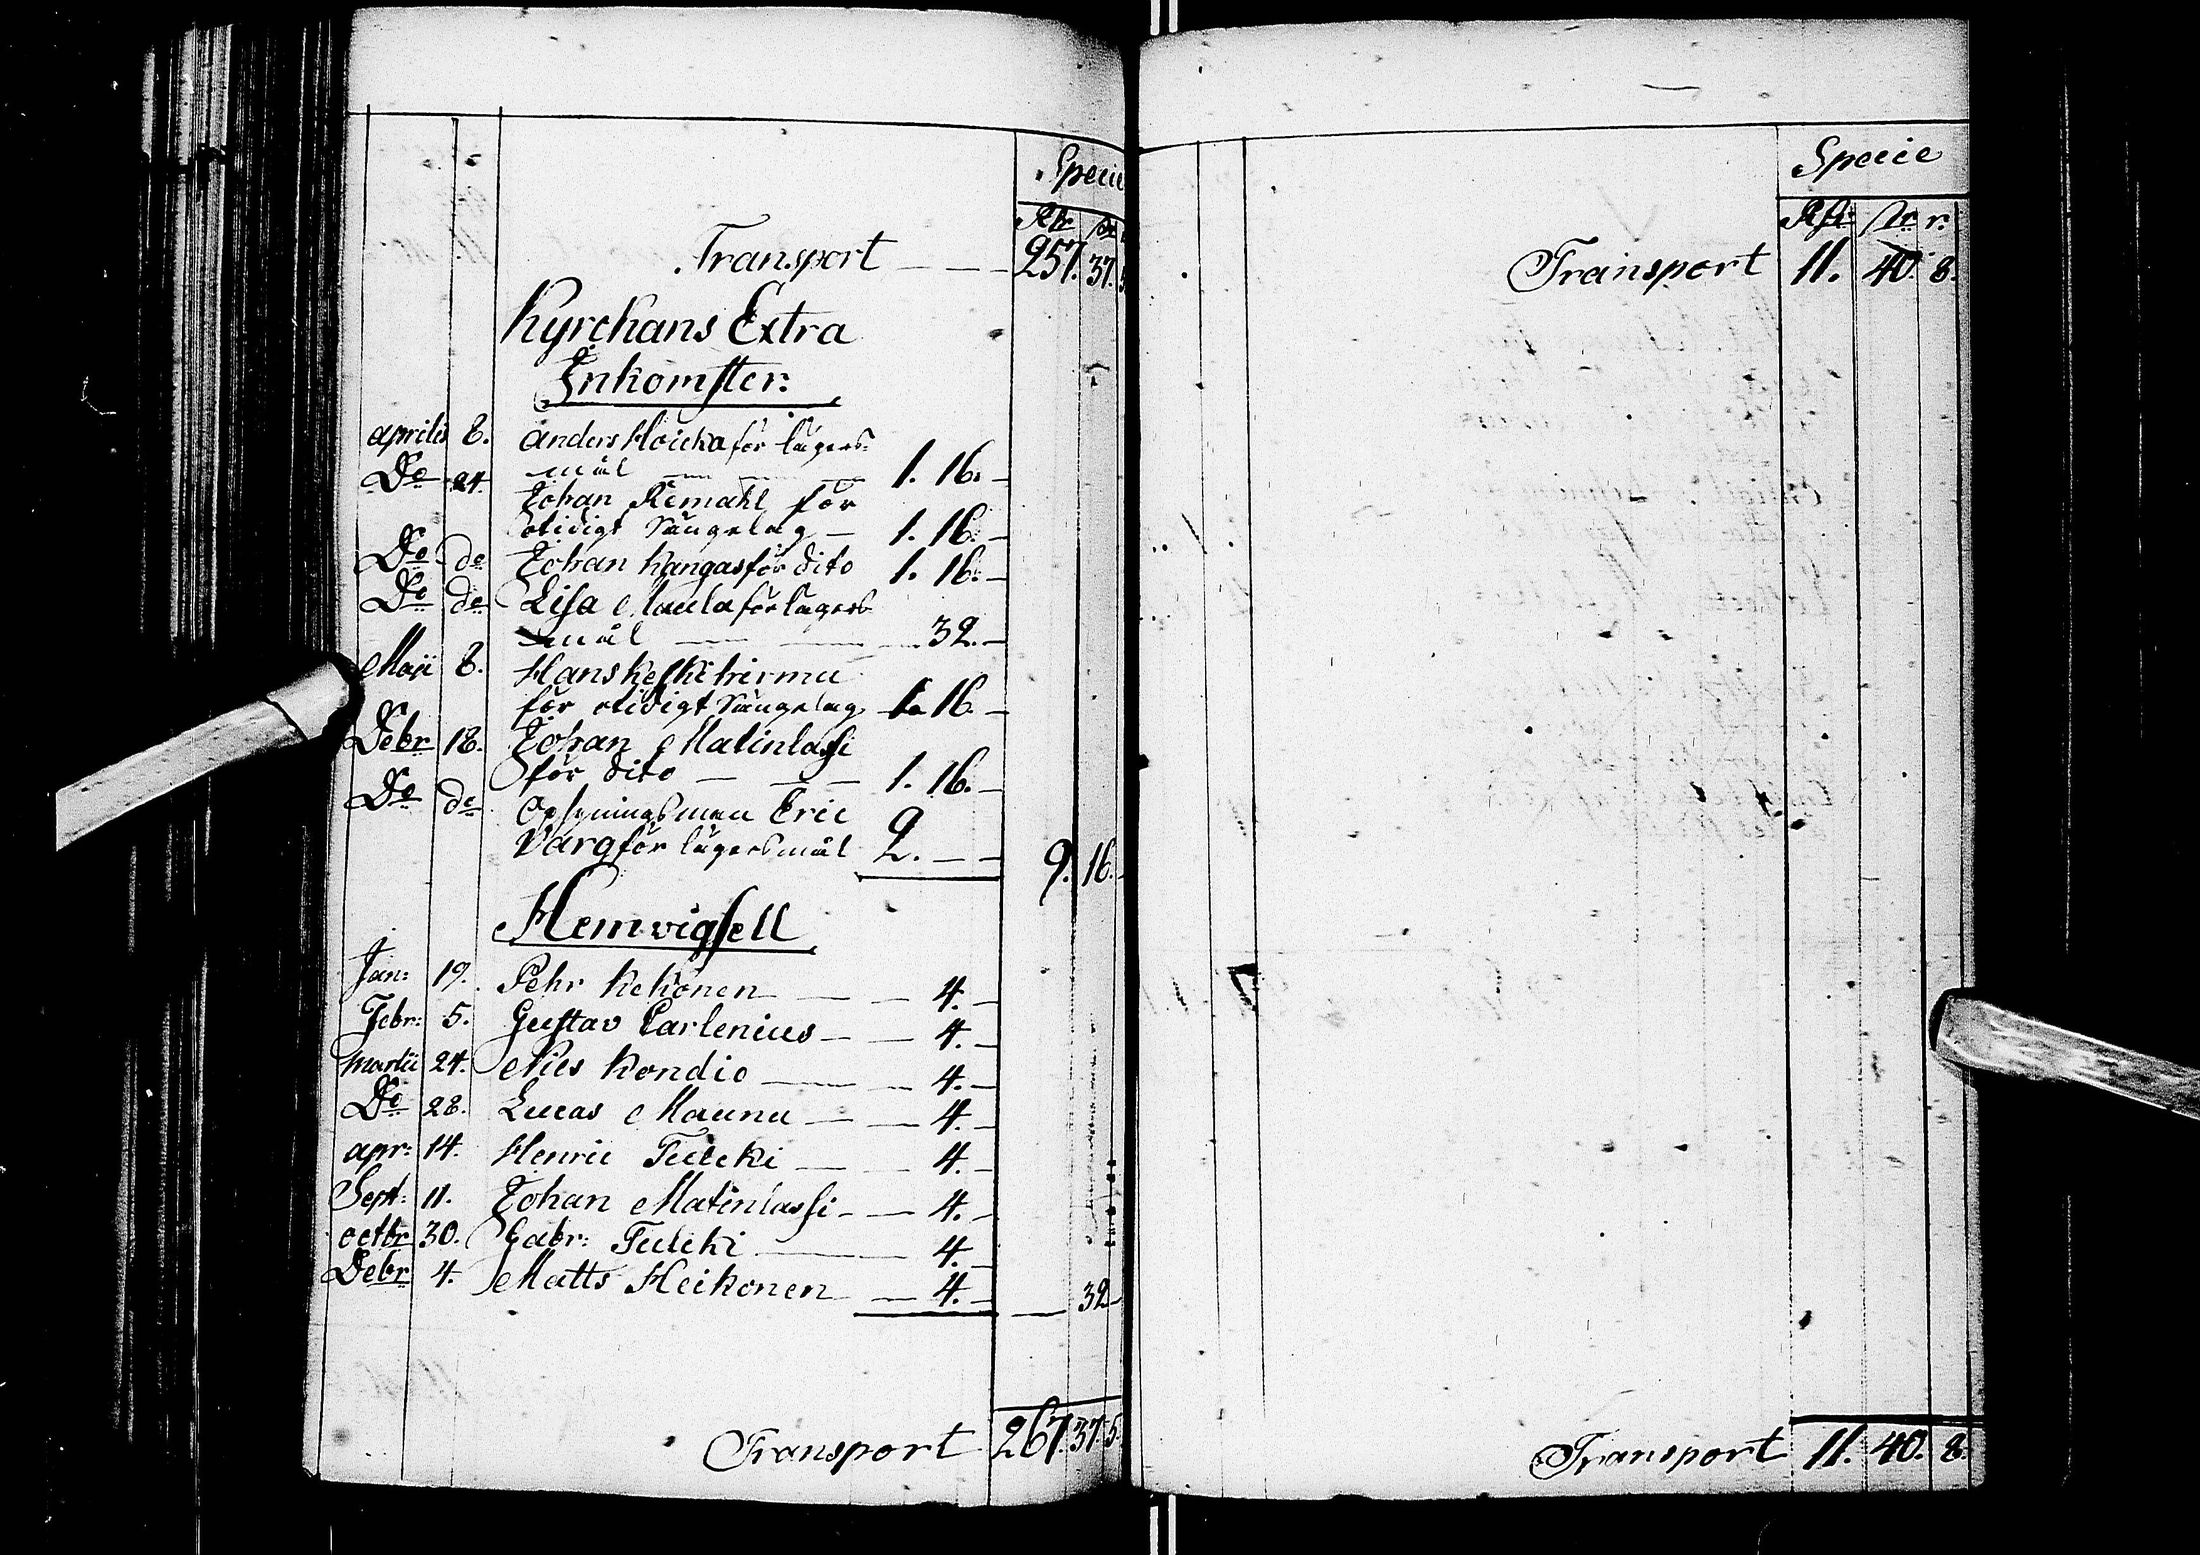 Specie
Rdr ß
Transport — — 257. 37. 5
Kyrchans Extra
Inkomster:
Aprilis 8. Anders Hoicka för lägers-
mål — — — 1. 16. —
Do 24. Johan Remahl för
otidigt Sängelag — 1. 16. —
Do do Johan Kangas för dito 1. 16. —
Do do Lisa Maula för lägers
mål — — — 32. —
Maji 8. Hans Keskihirmu
för otidigt Sängelag 1. 16. —
Debr 18. Johan Matinlassi
för dito — — 1. 16. —
Do do Opsyningsman Eric
Varg för lägersmål 2. — — 9. 16. —
Hemvigsell
Jan: 19. Pehr Kekonen — — 4. —
Febr: 5. Gustav Carlenius — — 4. —
Martii 24. Nils Kondio — — 4. —
Do 28. Lucas Maunu — — 4. —
apr: 14. Henric Tulcki — — 4. —
Sept: 11. Johan Matinlassi — — 4. —
octbr 30. Gabr: Tulcki — — 4. —
Debr 4. Matts Heikonen — 4. — — 32 —
Transport 267. 37. 5.
Specie
Rdr ß r.
Transport 11. 40. 8.
Transport 11. 40. 8.